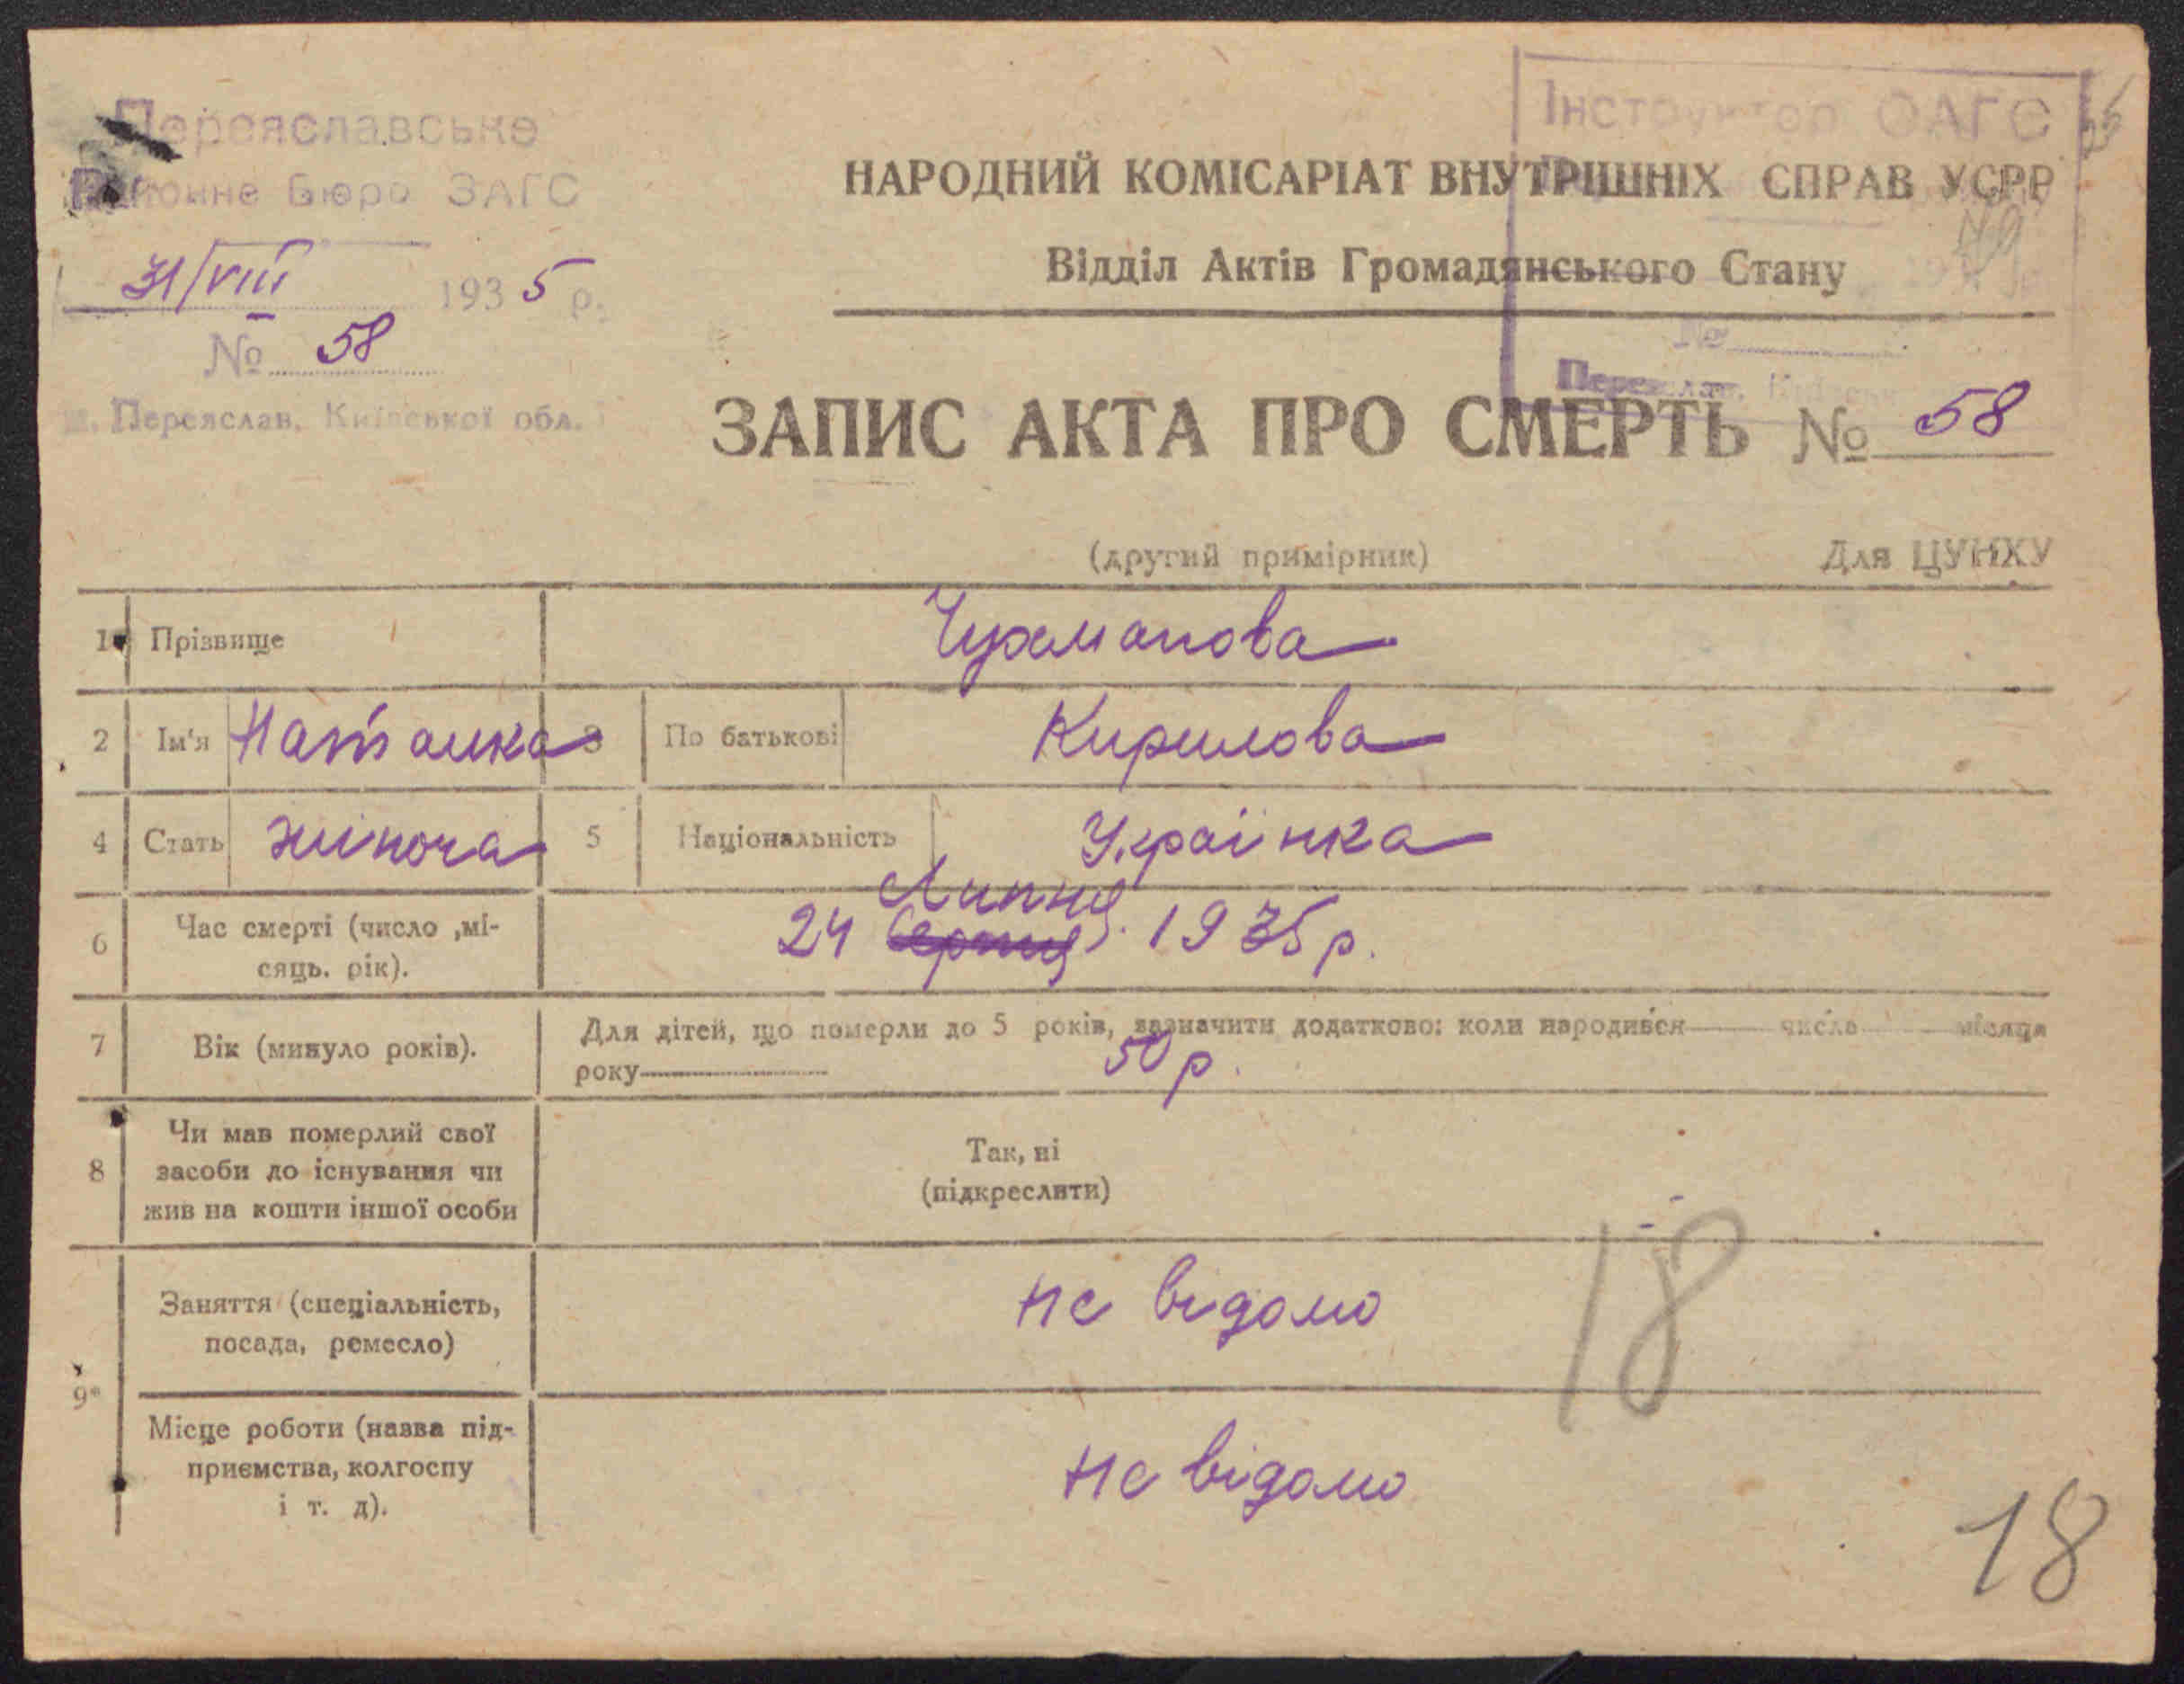 Переяславське
Районне Бюро ЗАГС
31/VIII 1935 р.
№ 58
м. Переяслав, Київської обл.
Інструктор ОАГС
НАРОДНИЙ КОМІСАРІАТ ВНУТРІШНІХ СПРАВ УСРР
Відділ Актів Громадянського Стану
№
Переяслав, Київськ
ЗАПИС АКТА ПРО СМЕРТЬ № 58
(другий примірник) Для ЦУНХУ
1 Прізвище Чухманова
2 Ім'я Наталка 3 По батькові Кирилова
4 Стать жіноча 5 Національність Українка
Липня
6 Час смерті (число ,мі-
сяць. рік).
24 Серпня 1935 р.
7 Вік (минуло років).
Для дітей, що померли до 5 років, зазначити додатково: коли народився числа місяця
року 50 р.
8 Чи мав померлий свої
засоби до існування чи
жив на кошти іншої особи
Так, ні
(підкреслити)
9
Заняття (спеціальність,
посада, ремесло)
не відомо
18
Місце роботи (назва під-
приємства, колгоспу
і т. д).
не відомо
18